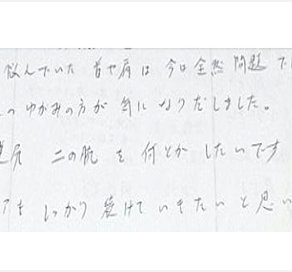 悩んでいた 首や肩は 今日全然 問題 で
の ゆがみの方が 気になりだしました。
尻 二の腕 を 何とか したいです
アも しっかり 続けて いきたい と思い